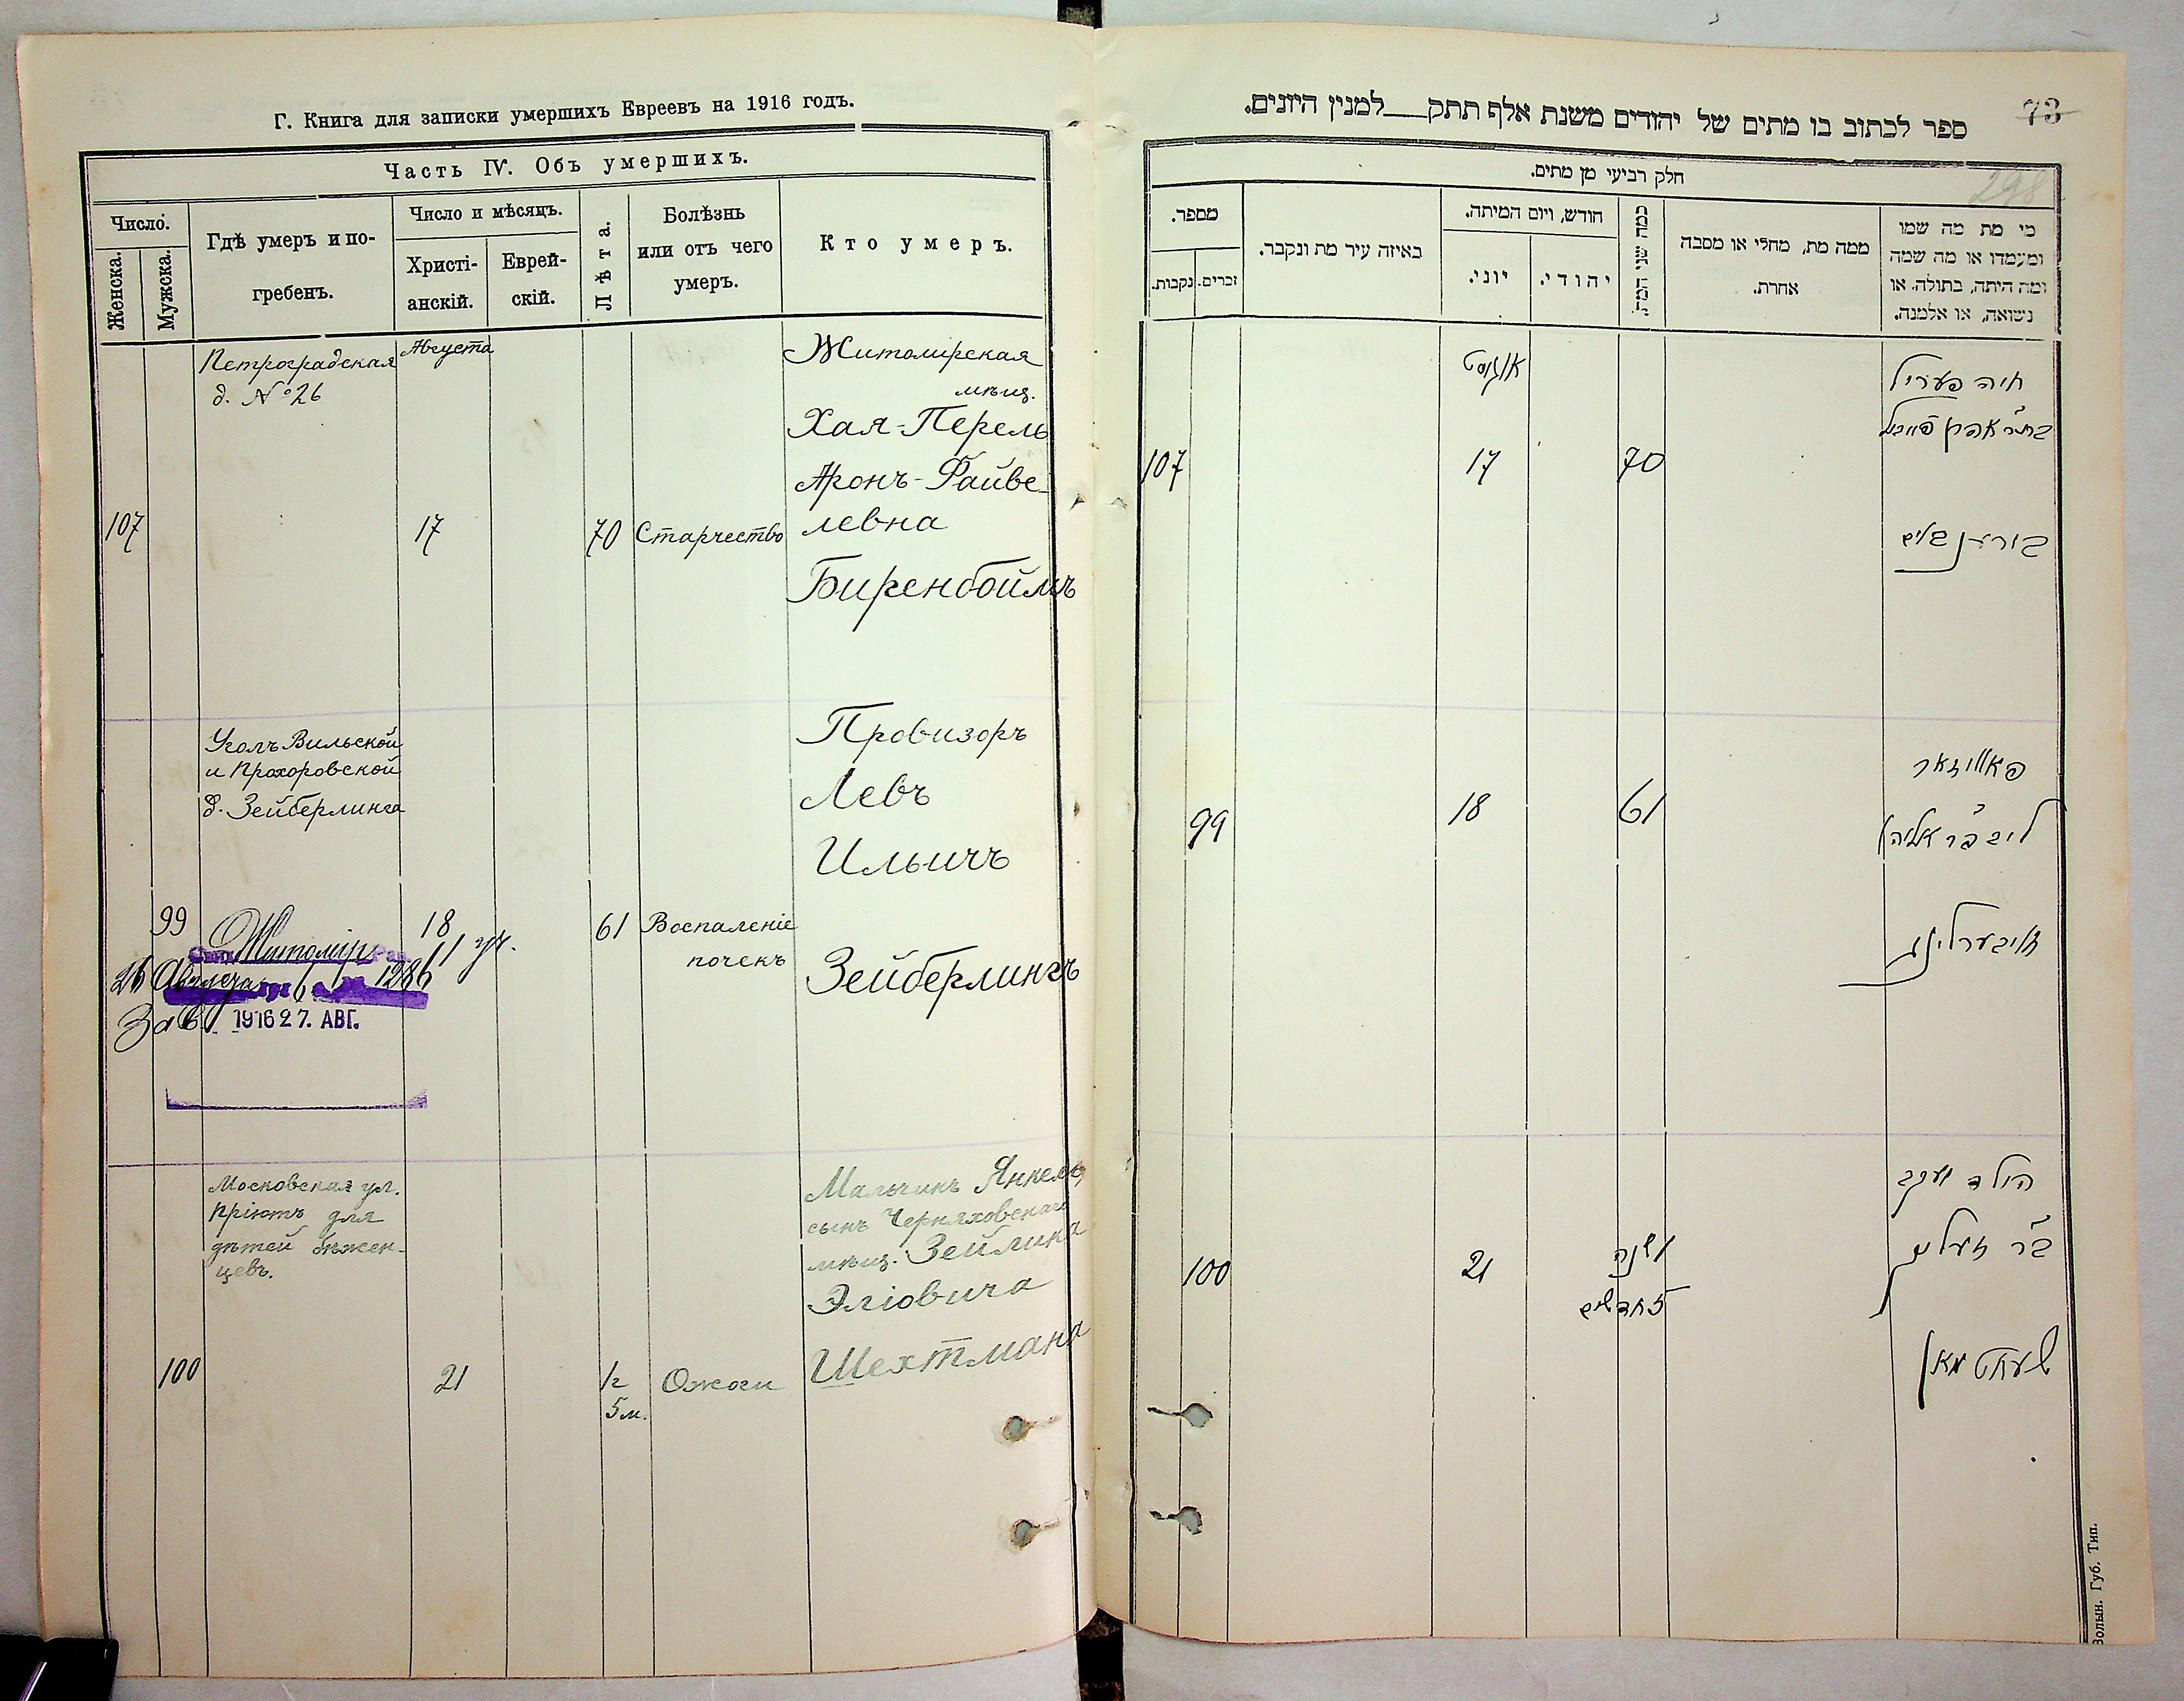 Г. Книга для записки умершихъ Евреевъ на 1916 годъ.
Часть IV. Объ умершихъ.
Число.
Женска.
Мужска.
Гдѣ умеръ и по-
гребенъ.
Число и мѣсяцъ.
Христі-
анскій.
Еврей-
скій.
Лѣта.
Болѣзнь
или отъ чего
умеръ.
Кто умеръ.
Петроградская
д. № 26
Августа
107
17
70
Старчество
Житомирская
мѣщ.
Хая-Перель
Аронъ-Файве-
левна
Биренбоймъ
Уголъ Вильской
и Прохоровской
д. Зейберлинга
99
18
61
Воспаленіе
почекъ
Провизоръ
Левъ
Ильичъ
Зейберлингъ
Житоміръ
26 Августа 6 1286
1916 27. АВГ.
Московская ул.
Пріютъ для
дѣтей бѣжен-
цевъ.
100
21
1 г
5 м.
Ожоги
Мальчикъ Янкель,
сынъ Черняховскаго
мѣщ. Зейлика
Эліовича
Шехтмана
73
298
ספר לכתוב בו מתים של יהודים משנת אלף תתק למנין היונים.
חלק רביעי מן מתים.
מספר.
נקבות.
זכרים.
באיזה עיר מת ונקבר.
חודש, ויום המיתה.
יוני.
יהודי.
כמה שני המת.
ממה מת, מחלי או מסבה
אחרת.
מי מת מה שמו
ומעמדו או מה שמה
ומה היתה, בתולה או
נשואה, או אלמנה.
107
אוגוסט
17
70
חיה פעריל
בת ר' אהרן פייוויל
בירענבוים
99
18
61
ליב ב"ר אליהו
זייבערלינג
100
21
1 שנה
5 חדשים
הילד יענקב
ב"ר זעליג
שעכטמאן
Волын. Губ. Тип.